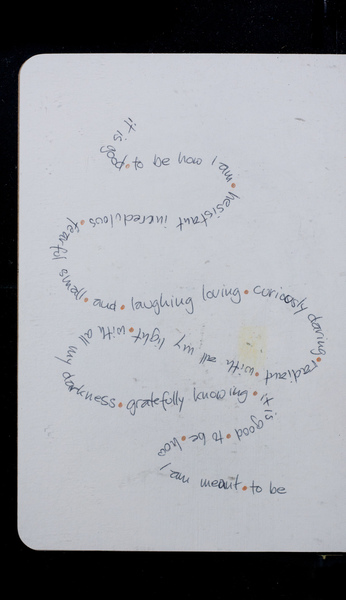 it is good • to be how I am •
hesistant incredulous •
fearful small • and • laughing loving • curiously daring •
radiant • with all my light • with all
my darkness • gratefully knowing • it
is good • to be how
I am meant • to be